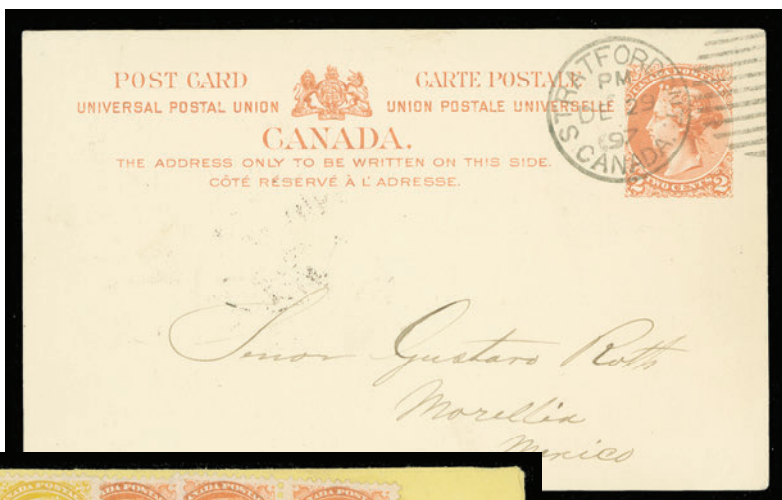 POST CARD CARTE POSTALE
UNIVERSAL POSTAL UNION UNION POSTALE UNIVERSELLE
CANADA.
THE ADDRESS ONLY TO BE WRITTEN ON THIS SIDE.
CÔTÉ RÉSERVÉ À L'ADRESSE.
STRATFORD
PM
DE 29
97
CANADA
2 TWO CENTS 2
Senor Gustavo Roth
Morellia
Mexico